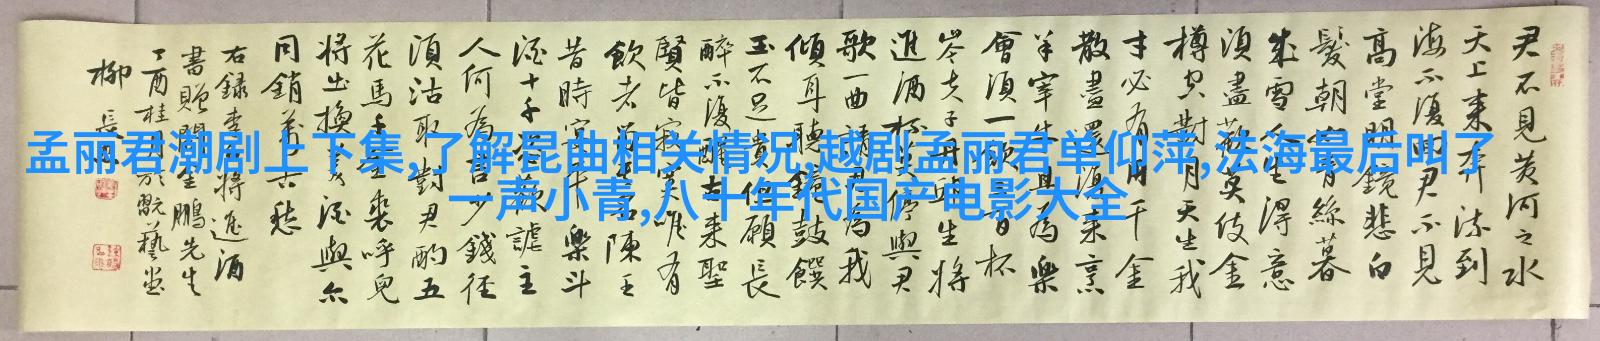 君不见黄河之水
天上来奔流到
海不復回君不見
高堂明鏡悲白
髮朝如青絲暮
成雪人生得意
須盡歡莫使金
樽空對月天生我
才必有用千金
散盡還復來烹
羊宰牛且為樂
會須一飲三百杯
岑夫子丹丘生將
進酒杯莫停與君
歌一曲請君為我
傾耳聽鐘鼓饌
玉不足貴但願長
醉不復醒古來聖
賢皆寂寞唯有
飲者留其名陳王
昔時宴平樂斗
酒十千恣歡謔主
人何為言少錢徑
須沽取對君酌五
花馬千金裘呼兒
將出換美酒與尔
同銷萬古愁
右録李白將進酒
書贈 鵬先生
丁酉桂月於 藝堂
柳長
孟丽君潮剧上下集,了解昆曲相关情况,越剧孟丽君单仰萍,法海最后叫了
一声小青,八十年代国产电影大全